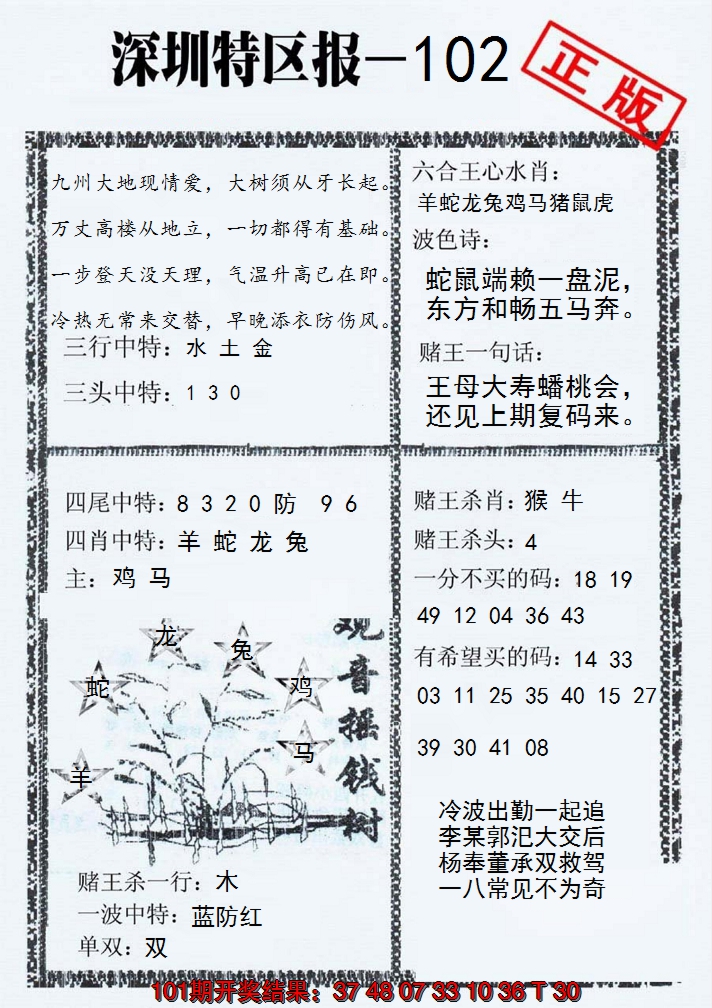 深圳特区报-102
正版
九州大地现情爱，大树须从牙长起。
万丈高楼从地立，一切都得有基础。
一步登天没天理，气温升高已在即。
冷热无常来交替，早晚添衣防伤风。
三行中特：水 土 金
三头中特：1 3 0
六合王心水肖：
羊蛇龙兔鸡马猪鼠虎
波色诗：
蛇鼠端赖一盘泥，
东方和畅五马奔。
赌王一句话：
王母大寿蟠桃会，
还见上期复码来。
四尾中特：8 3 2 0 防 9 6
四肖中特：羊 蛇 龙 兔
主：鸡 马
龙
兔
蛇
鸡
马
羊
观音摇钱树
赌王杀一行：木
一波中特：蓝防红
单双：双
赌王杀肖：猴 牛
赌王杀头：4
一分不买的码：18 19
49 12 04 36 43
有希望买的码：14 33
03 11 25 35 40 15 27
39 30 41 08
冷波出勤一起追
李某郭汜大交后
杨奉董承双救驾
一八常见不为奇
101期开奖结果：37 48 07 33 10 36 T 30